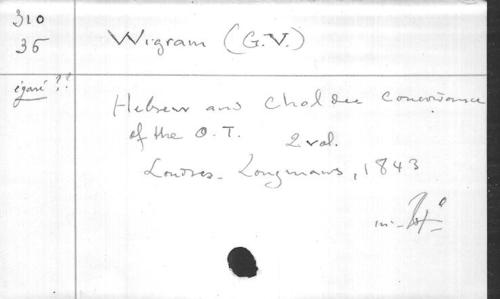 310
35
Wigram (G.V.)
égaré ??
Hebrew and Chaldee concordance
of the O.T. 2 vol.
Londres - Longmans, 1843
in-